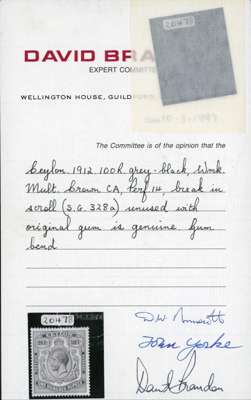 20478
DAVID BRA
EXPERT COMMITTEE
WELLINGTON HOUSE, GUILDFORD,
The Committee is of the opinion that the
Ceylon. 1912 100R grey-black, Wmk.
Mult. Crown CA, Perf 14, break in
scroll (S.G. 328a) unused with
original gum is genuine Gum
bend
20478
John Yorke
David Brandon